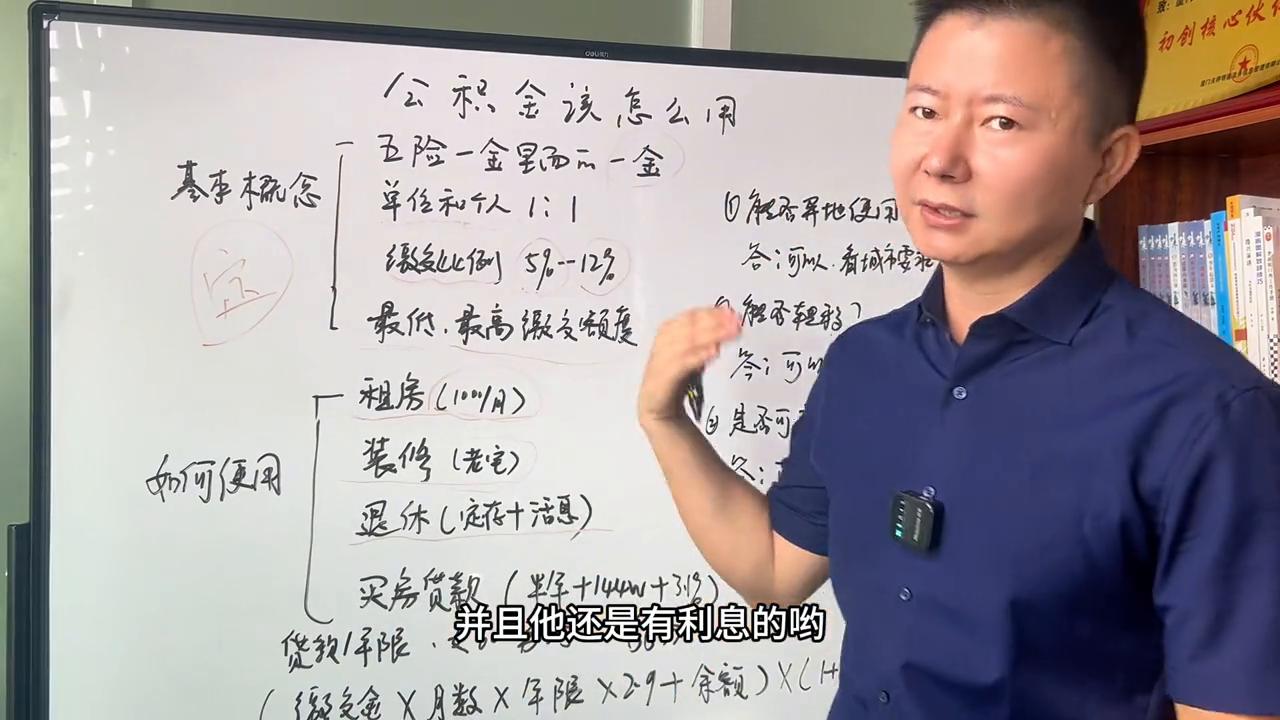 公积金该怎么用
基本概念
五险一金里面的一金
单位和个人 1:1
缴交比例 5%--12%
最低、最高缴交额度
定
如何使用
租房(1000/月)
装修(老宅)
退休(定存+活息)
买房贷款(半年+144w+3.1%)
贷款年限、
(缴交金×月数×年限×2.9+余额)×(1+
① 能否异地使用
答:可以.看城市要求
能否转移?
答:可以
③ 是否可
答:
并且他还是有利息的哟
初创核心伙伴
deli